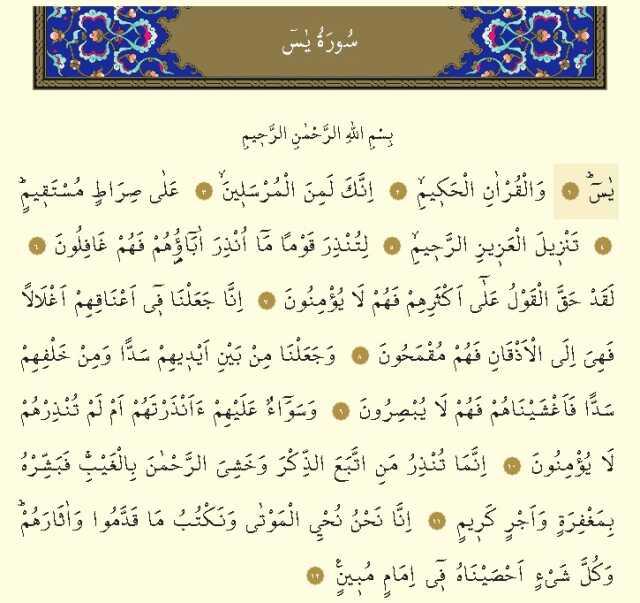 سُورَةُ يٰسٓ
بِسْمِ اللهِ الرَّحْمٰنِ الرَّحِيمِ
يٰسٓۜ ١ وَالْقُرْاٰنِ الْحَكِيمِۙ ٢ اِنَّكَ لَمِنَ الْمُرْسَلِينَۙ ٣ عَلٰى صِرَاطٍ مُسْتَقِيمٍۜ
٤ تَنْزِيلَ الْعَزِيزِ الرَّحِيمِۙ ٥ لِتُنْذِرَ قَوْمًا مَٓا اُنْذِرَ اٰبَٓاؤُ۬هُمْ فَهُمْ غَافِلُونَ ٦
لَقَدْ حَقَّ الْقَوْلُ عَلٰٓى اَكْثَرِهِمْ فَهُمْ لَا يُؤْمِنُونَ ٧ اِنَّا جَعَلْنَا فِٓي اَعْنَاقِهِمْ اَغْلَالًا
فَهِيَ اِلَى الْاَذْقَانِ فَهُمْ مُقْمَحُونَ ٨ وَجَعَلْنَا مِنْ بَيْنِ اَيْدِيهِمْ سَدًّا وَمِنْ خَلْفِهِمْ
سَدًّا فَاَغْشَيْنَاهُمْ فَهُمْ لَا يُبْصِرُونَ ٩ وَسَوَٓاءٌ عَلَيْهِمْ ءَاَنْذَرْتَهُمْ اَمْ لَمْ تُنْذِرْهُمْ
لَا يُؤْمِنُونَ ١٠ اِنَّمَا تُنْذِرُ مَنِ اتَّبَعَ الذِّكْرَ وَخَشِيَ الرَّحْمٰنَ بِالْغَيْبِۚ فَبَشِّرْهُ
بِمَغْفِرَةٍ وَاَجْرٍ كَرِيمٍ ١١ اِنَّا نَحْنُ نُحْيِ الْمَوْتٰى وَنَكْتُبُ مَا قَدَّمُوا وَاٰثَارَهُمْۜ
وَكُلَّ شَيْءٍ اَحْصَيْنَاهُ فِٓي اِمَامٍ مُبِينٍ۟ ١٢